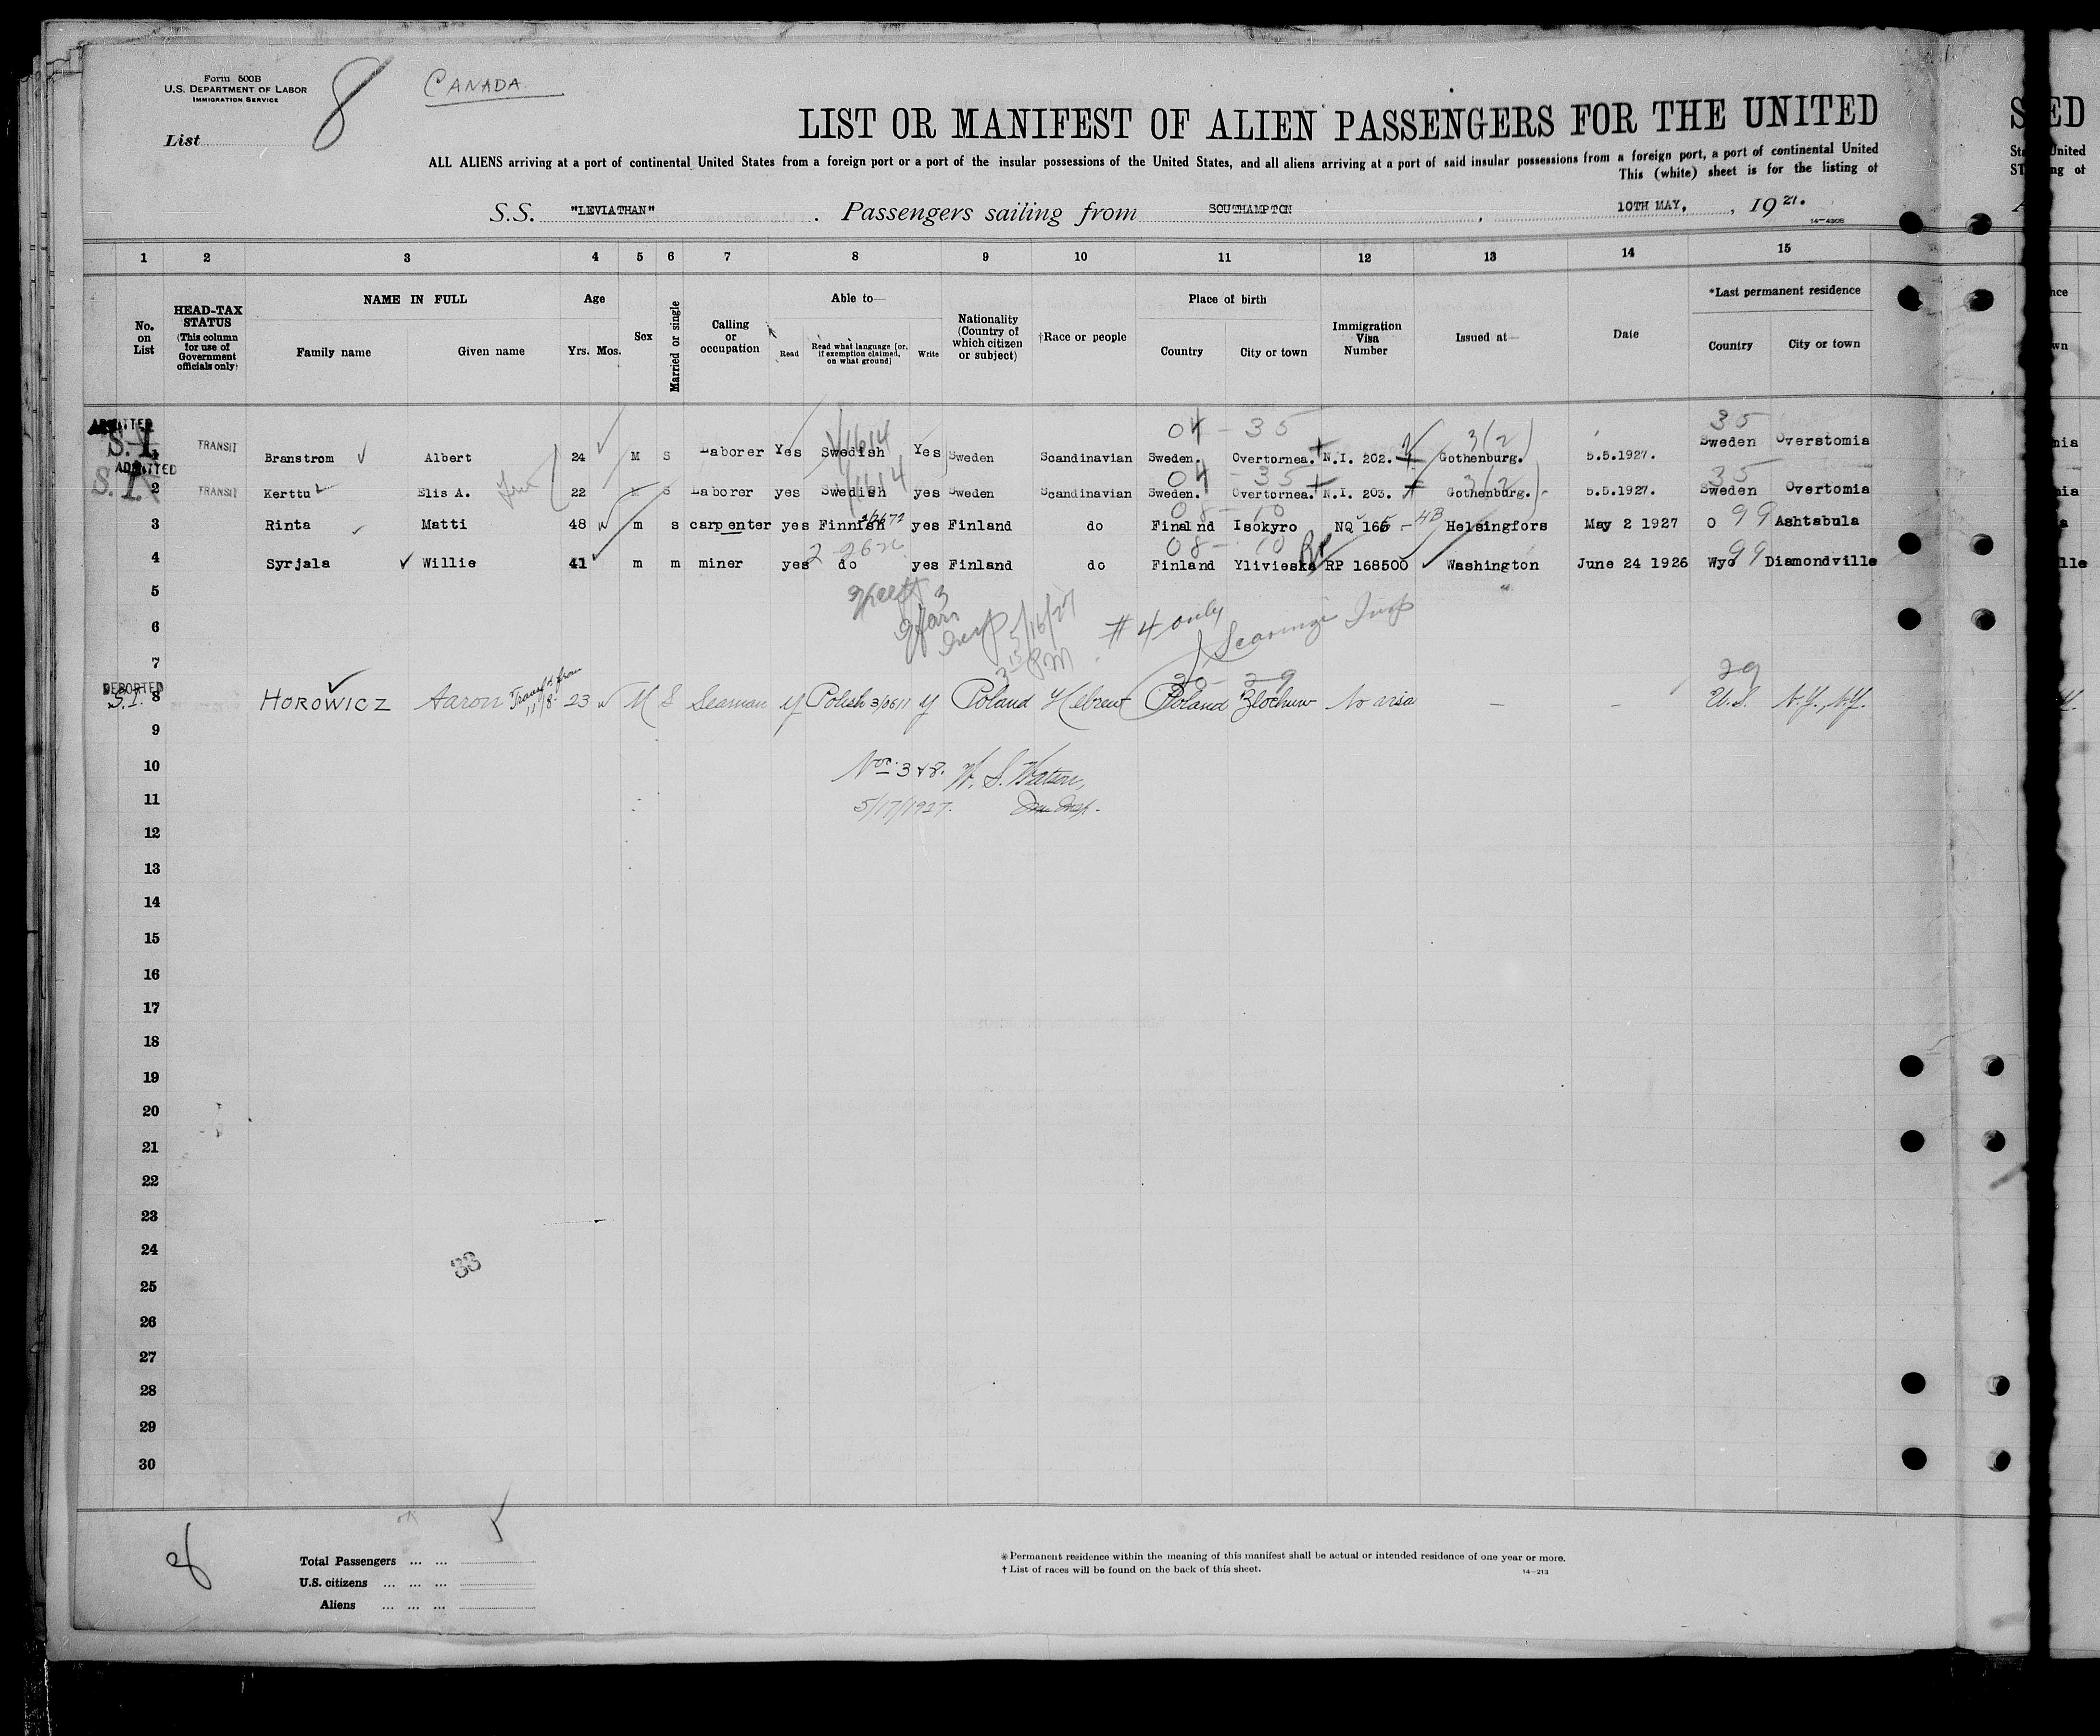 Form 500B
U.S. DEPARTMENT OF LABOR
IMMIGRATION SERVICE
8
CANADA
List
LIST OR MANIFEST OF ALIEN PASSENGERS FOR THE UNITED
ALL ALIENS arriving at a port of continental United States from a foreign port or a port of the insular possessions of the United States, and all aliens arriving at a port of said insular possessions from a foreign port, a port of continental United
This (white) sheet is for the listing of
S.S. "LEVIATHAN". Passengers sailing from SOUTHAMPTON, 10TH MAY, , 19 27.
14-4205
1 2 3 4 5 6 7 8 9 10 11 12 13 14 15
No. on List
HEAD-TAX STATUS
(This column for use of Government officials only)
NAME IN FULL
Family name Given name
Age
Yrs. Mos.
Sex
Married or single
Calling or occupation
Able to—
Read
Read what language [or, if exemption claimed, on what ground]
Write
Nationality (Country of which citizen or subject)
†Race or people
Place of birth
Country City or town
Immigration Visa Number
Issued at—
Date
*Last permanent residence
Country City or town
ADMITTED
04 - 35 3(2) 35
S.I. TRANSIT Branstrom Albert 24 M S Laborer Yes Swedish Yes Sweden Scandinavian Sweden. Overtornea. N.I. 202. Gothenburg. 5.5.1927. Sweden Overstomia
ADMITTED
04 - 35 3(2) 35
S.I. 2 TRANSIT Kerttu Elis A. 22 M S Laborer yes Swedish yes Sweden Scandinavian Sweden. Overtornea. N.I. 203. Gothenburg. 5.5.1927. Sweden Overtomia
08 - 10
3 Rinta Matti 48 m s carpenter yes Finnish yes Finland do Finalnd Isokyro NQ 166 - 4B Helsingfors May 2 1927 O 99 Ashtabula
08 - 10
4 Syrjala Willie 41 m m miner yes do yes Finland do Finland Ylivieska RP 168500 Washington June 24 1926 Wyo 99 Diamondville
5
6
5/16/27
#4 only
7
3 15 PM
DEPORTED
30 - 29 29
S.I. 8 HOROWICZ Aaron Transf'd from 23 M S Seaman y Polish y Poland Hebrew Poland Zlochuw No visa — — U.S. N.Y., N.Y.
9
10 Nos. 3 & 8. W. S. Watson,
11 5/17/1927.
12
13
14
15
16
17
18
19
20
21
22
23
24
33
25
26
27
28
29
30
5
Total Passengers ... ...
U.S. citizens ... ... ...
Aliens ... ... ...
* Permanent residence within the meaning of this manifest shall be actual or intended residence of one year or more.
† List of races will be found on the back of this sheet.
14-213